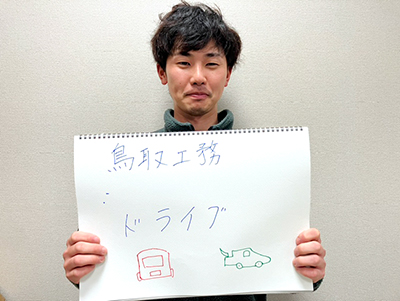 鳥取工務
:
ドライブ